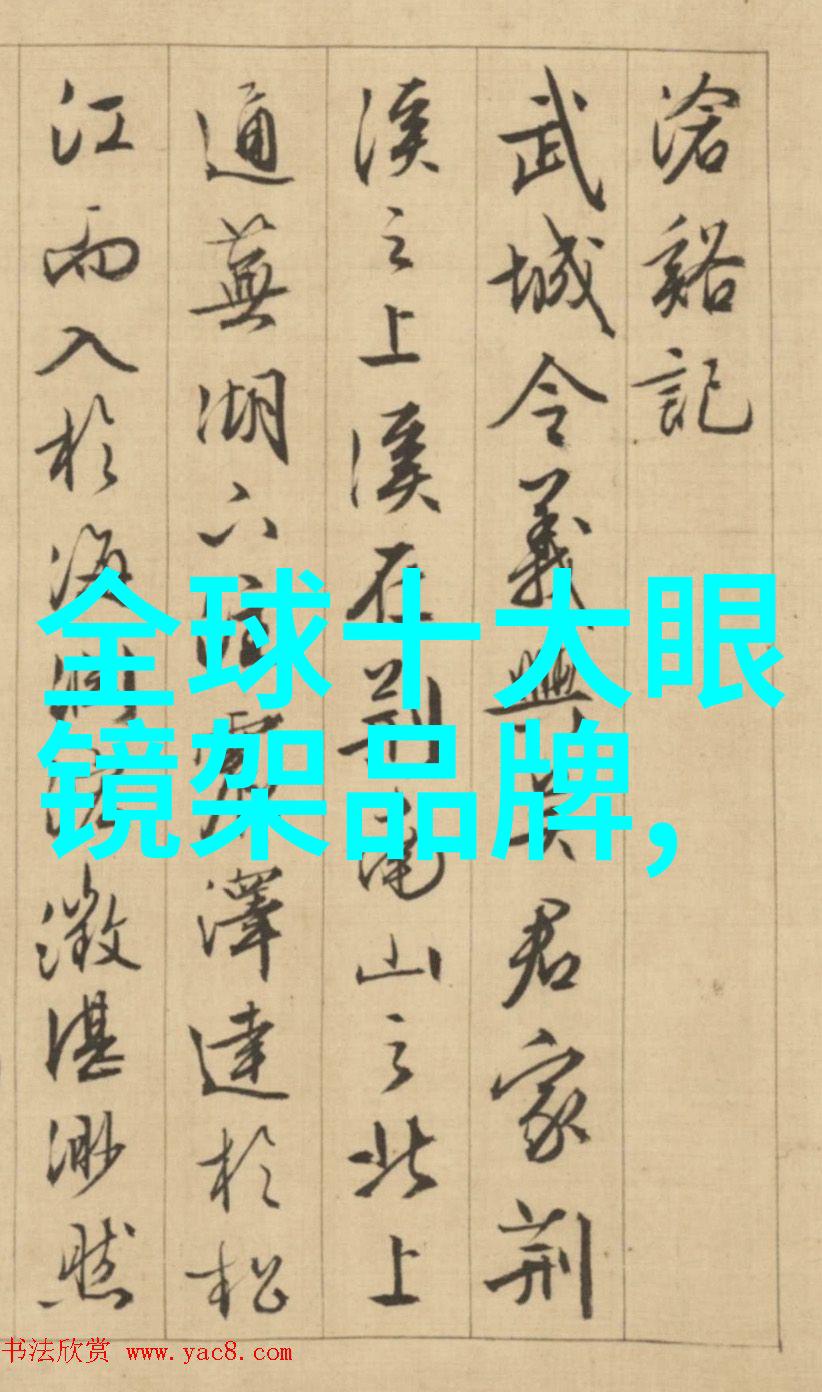 滄谿記
武城令義興吳君家荆
溪之上溪在荆南山之北上
通蕪湖
澤達於松
江而入於海
澂湛渺然
全球十大眼
镜架品牌,
书法欣赏 www.yac8.com